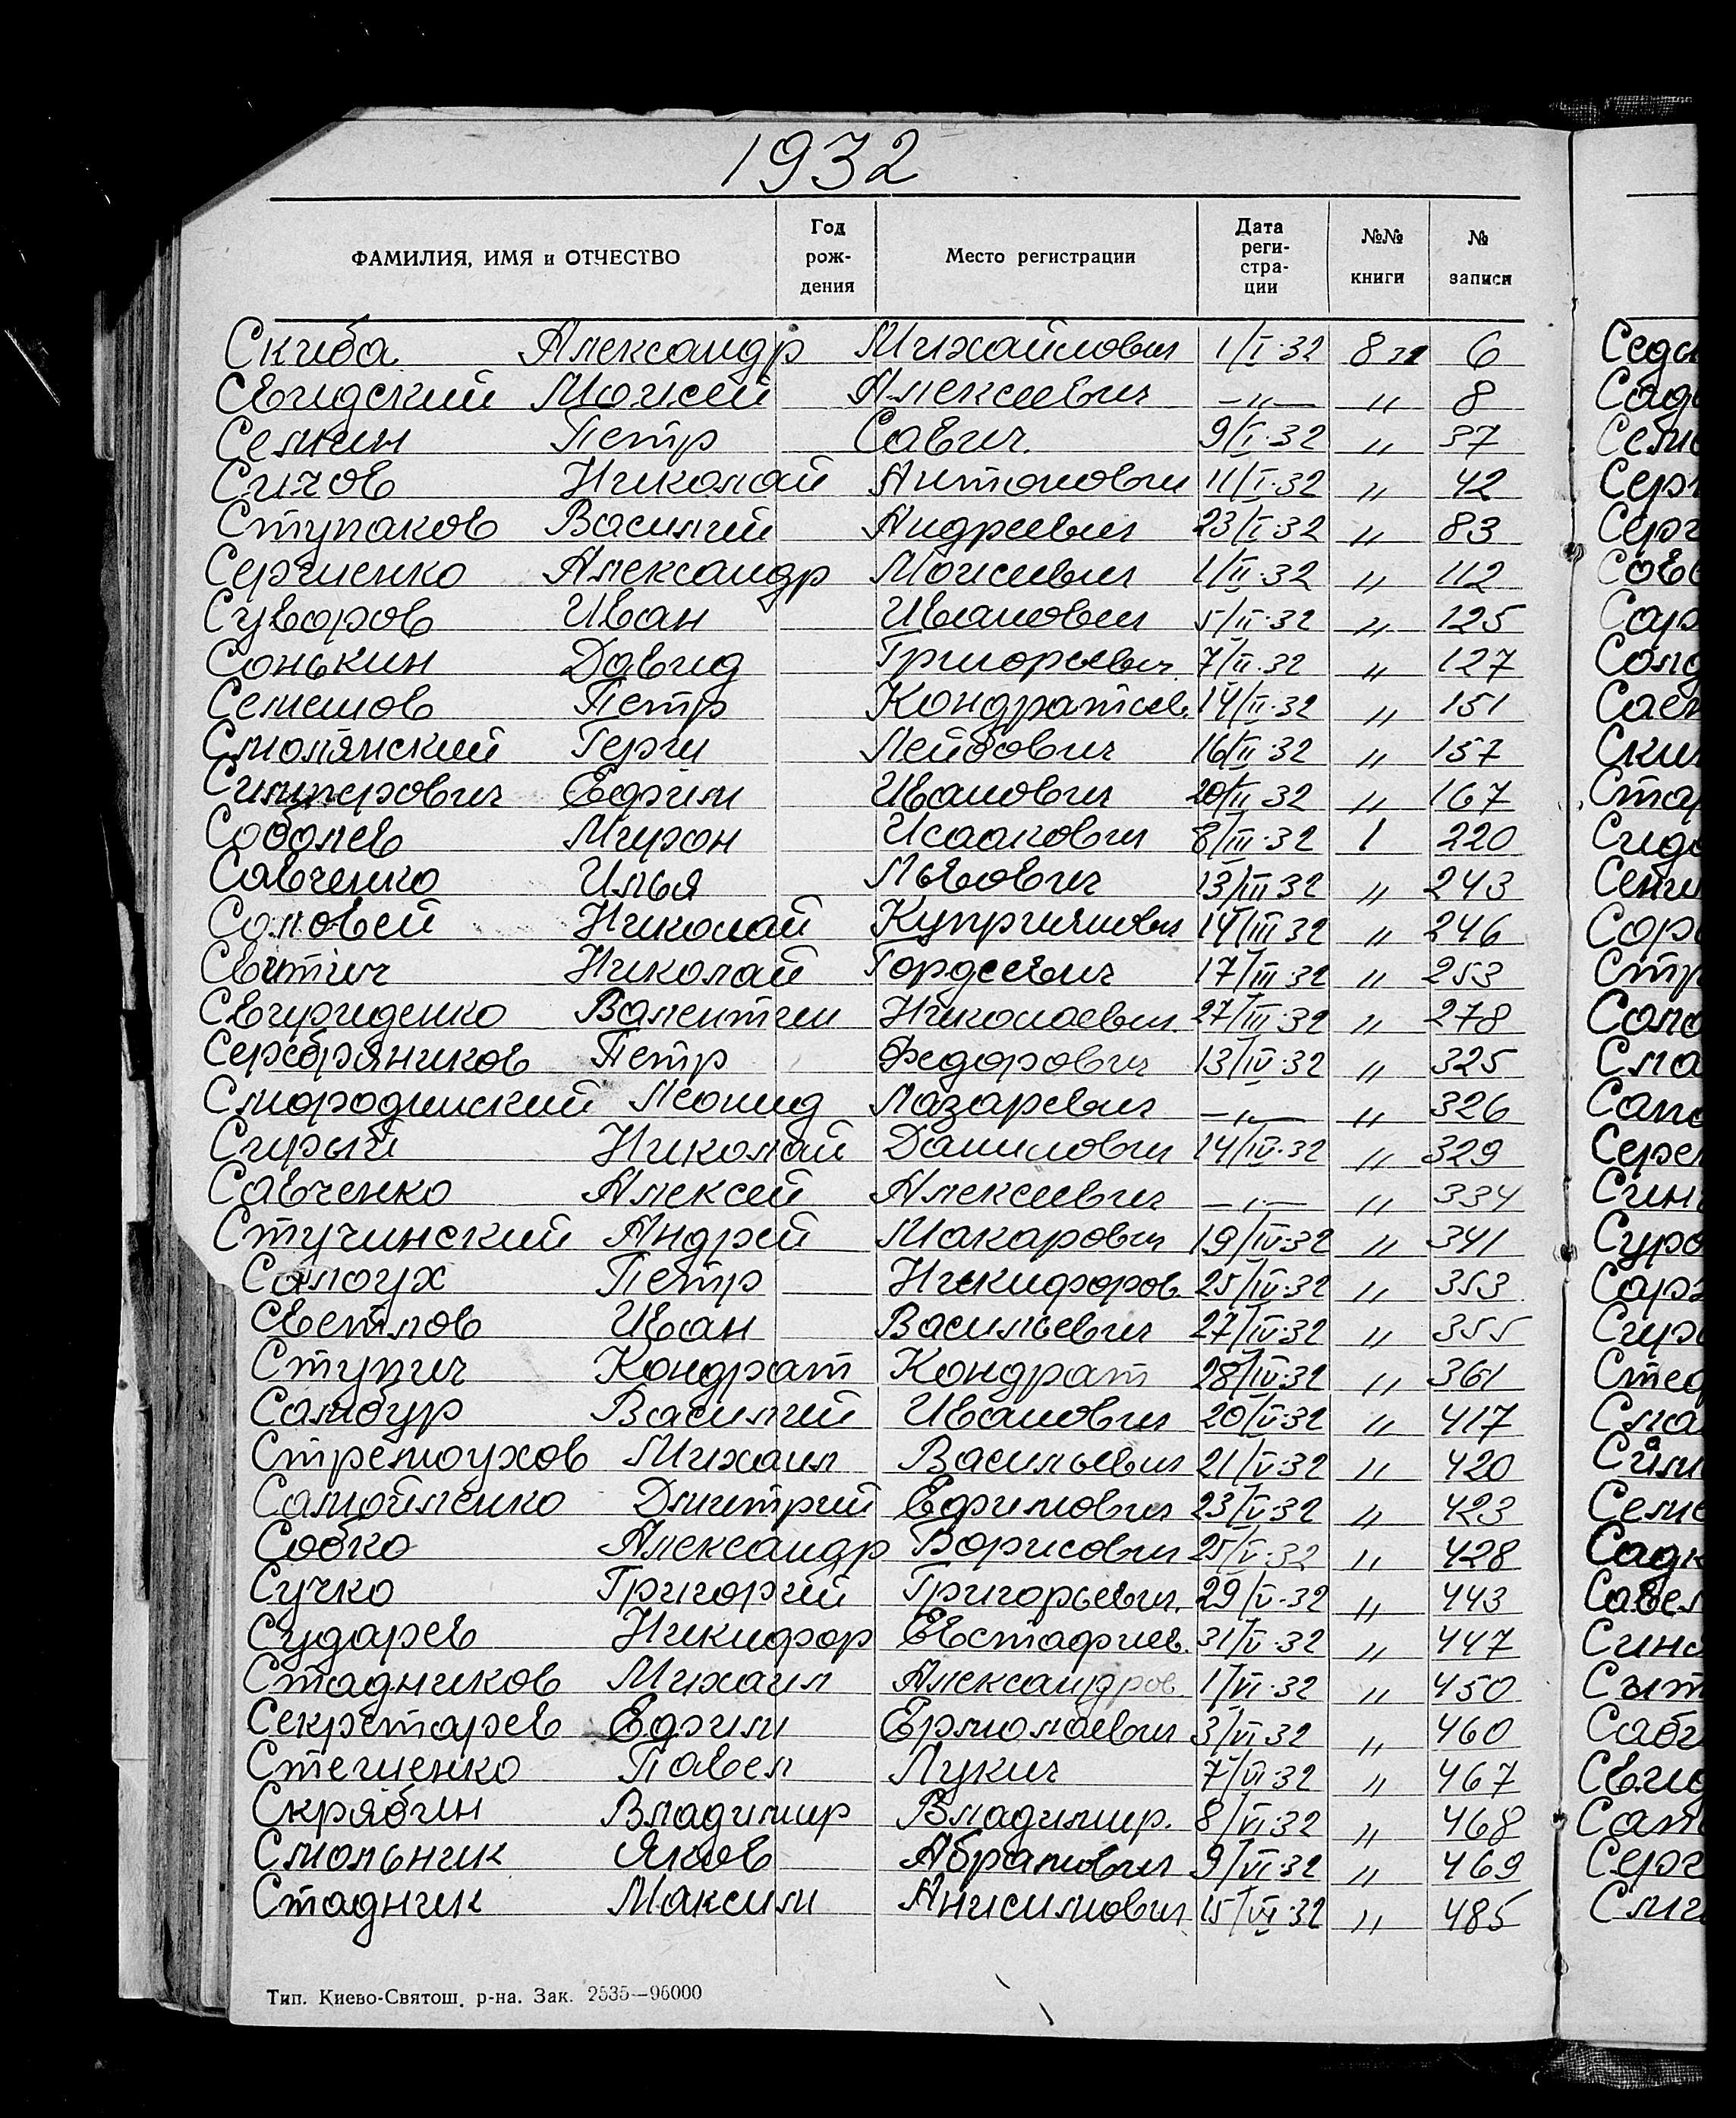 1932
ФАМИЛИЯ, ИМЯ и ОТЧЕСТВО Год рождения Место регистрации Дата регистрации №№ книги № записи
Скиба Александр Михайлович 1/I·32 8 6
Свидский Моисей Алексеевич —„— „ 8
Семкин Петр Савич. 9/I·32 „ 37
Сичов Николай Антонович 11/I·32 „ 42
Ступаков Василий Андреевич 23/I·32 „ 83
Сергиенко Александр Моисеевич 1/II·32 „ 112
Суворов Иван Иванович 5/II·32 „ 125
Сонькин Давид Григорьевич 7/II·32 „ 127
Семешов Петр Кондратьев. 14/II·32 „ 151
Смолянский Герш Лейбович 16/II·32 „ 157
Симперович Ефрим Иванович 20/II 32 „ 167
Соболев Мирон Исаакович 8/III·32 1 220
Савченко Илья Львович 13/III 32 „ 243
Соловей Николай 14/III 32 „ 246
Свитич Николай Гордеевич 17/III 32 „ 253
Свириденко Валентин Николаевич 27/III·32 „ 278
Серебряников Петр Федорович 13/IV·32 „ 325
Смородинский Леонид Лазаревич —„— „ 326
Сирый Николай Данилович 14/IV·32 „ 329
Савченко Алексей Алексеевич —„— „ 334
Стучинский Андрей Макарович 19/IV·32 „ 341
Салоух Петр Никифоров. 25/IV·32 „ 353
Светлов Иван Васильевич 27/IV·32 „ 355
Ступич Кондрат Кондрат 28/IV·32 „ 361
Самбур Василий Иванович 20/V·32 „ 417
Стремоухов Михаил Васильевич 21/V·32 „ 420
Самойленко Дмитрий Ефимович 23/V·32 „ 423
Собко Александр Борисович 25/V·32 „ 428
Сучко Григорий Григорьевич. 29/V·32 „ 443
Сударев Никифор Евстафиев. 31/V·32 „ 447
Стадников Михаил Александров 1/VI·32 „ 450
Секретарев Ефим Ермолаевич 3/VI 32 „ 460
Стешенко Павел Лукич 7/VI·32 „ 467
Скрябин Владимир Владимир. 8/VI 32 „ 468
Смольник Яков Абрамович 9/VI·32 „ 469
Стадник Максим Анисимович 15/VI·32 „ 485
Тип. Киево-Святош. р-на. Зак. 2535—96000